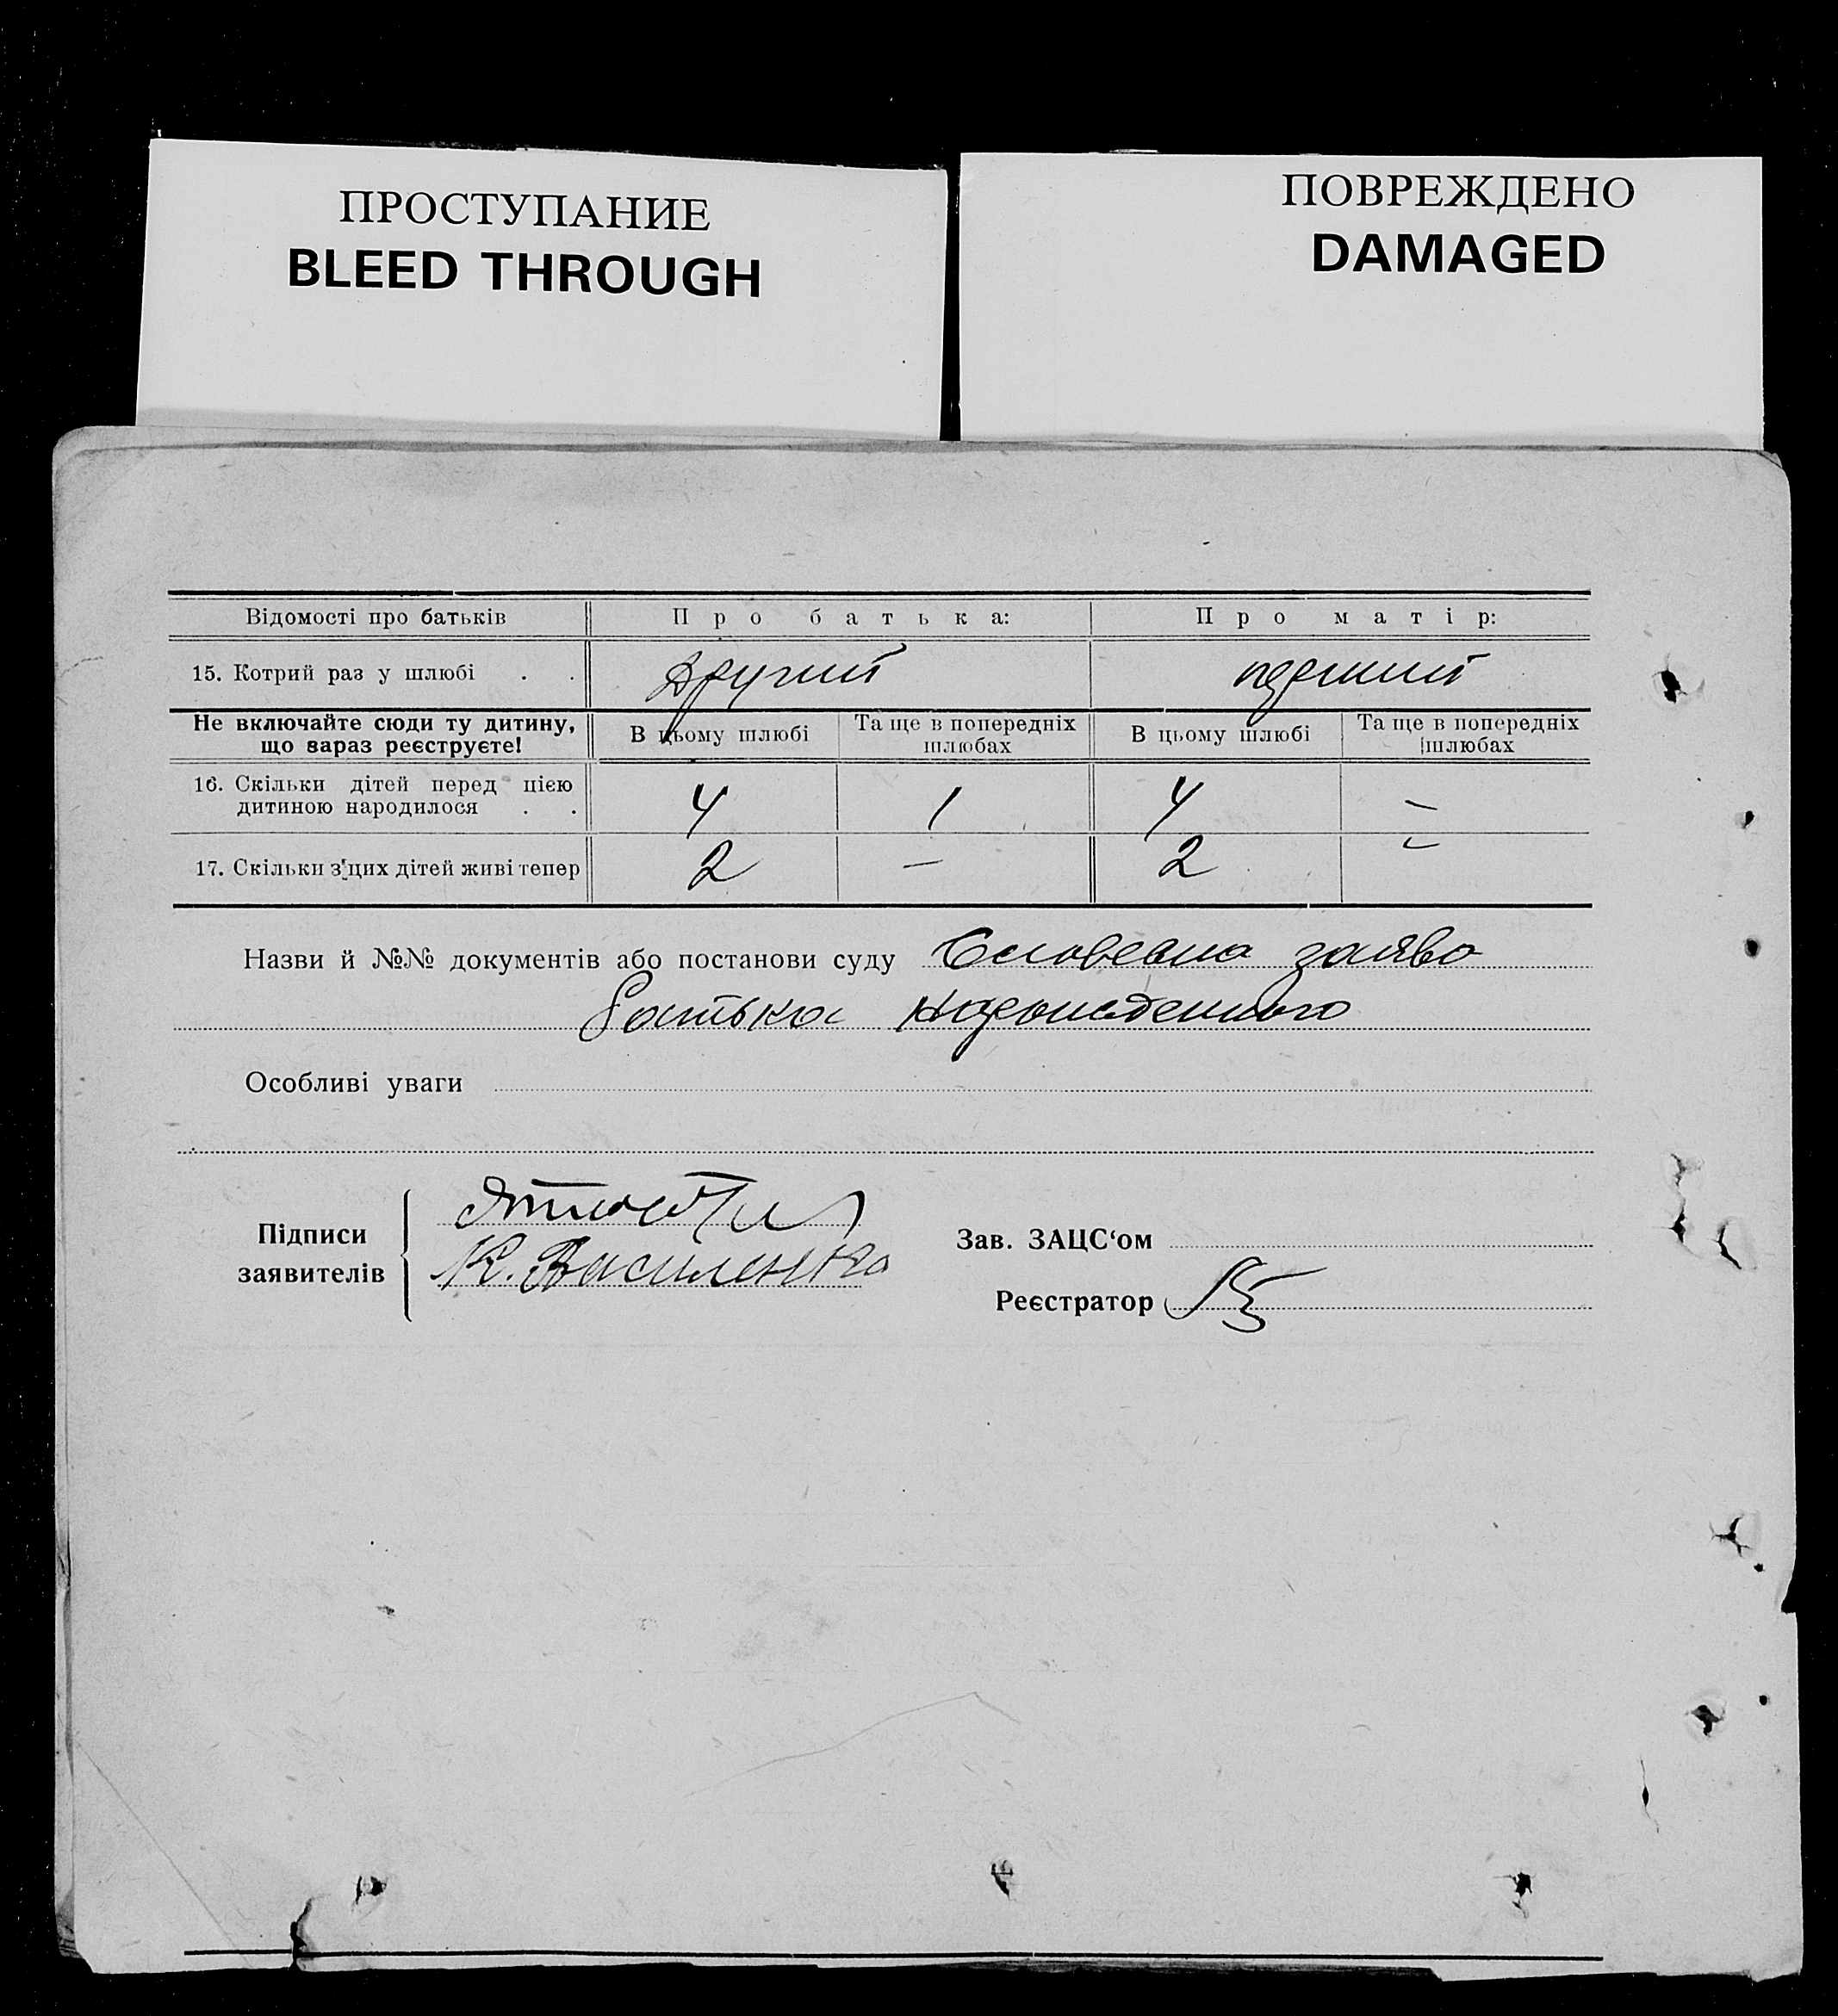 ПРОСТУПАНИЕ
BLEED THROUGH
ПОВРЕЖДЕНО
DAMAGED
Відомості про батьків Про батька: Про матір:
15. Котрий раз у шлюбі . . другий перший
Не включайте сюди ту дитину, що вараз реєструєте! В цьому шлюбі Та ще в попередніх шлюбах В цьому шлюбі Та ще в попередніх шлюбах
16. Скільки дітей перед цією дитиною народилося . . 4 1 4 —
17. Скільки з'цих дітей живі тепер 2 — 2 —
Назви й №№ документів або постанови суду Словесна заява
батька
Особливі уваги
Підписи заявителів
К. Василенко
Зав. ЗАЦС‘ом
Реєстратор